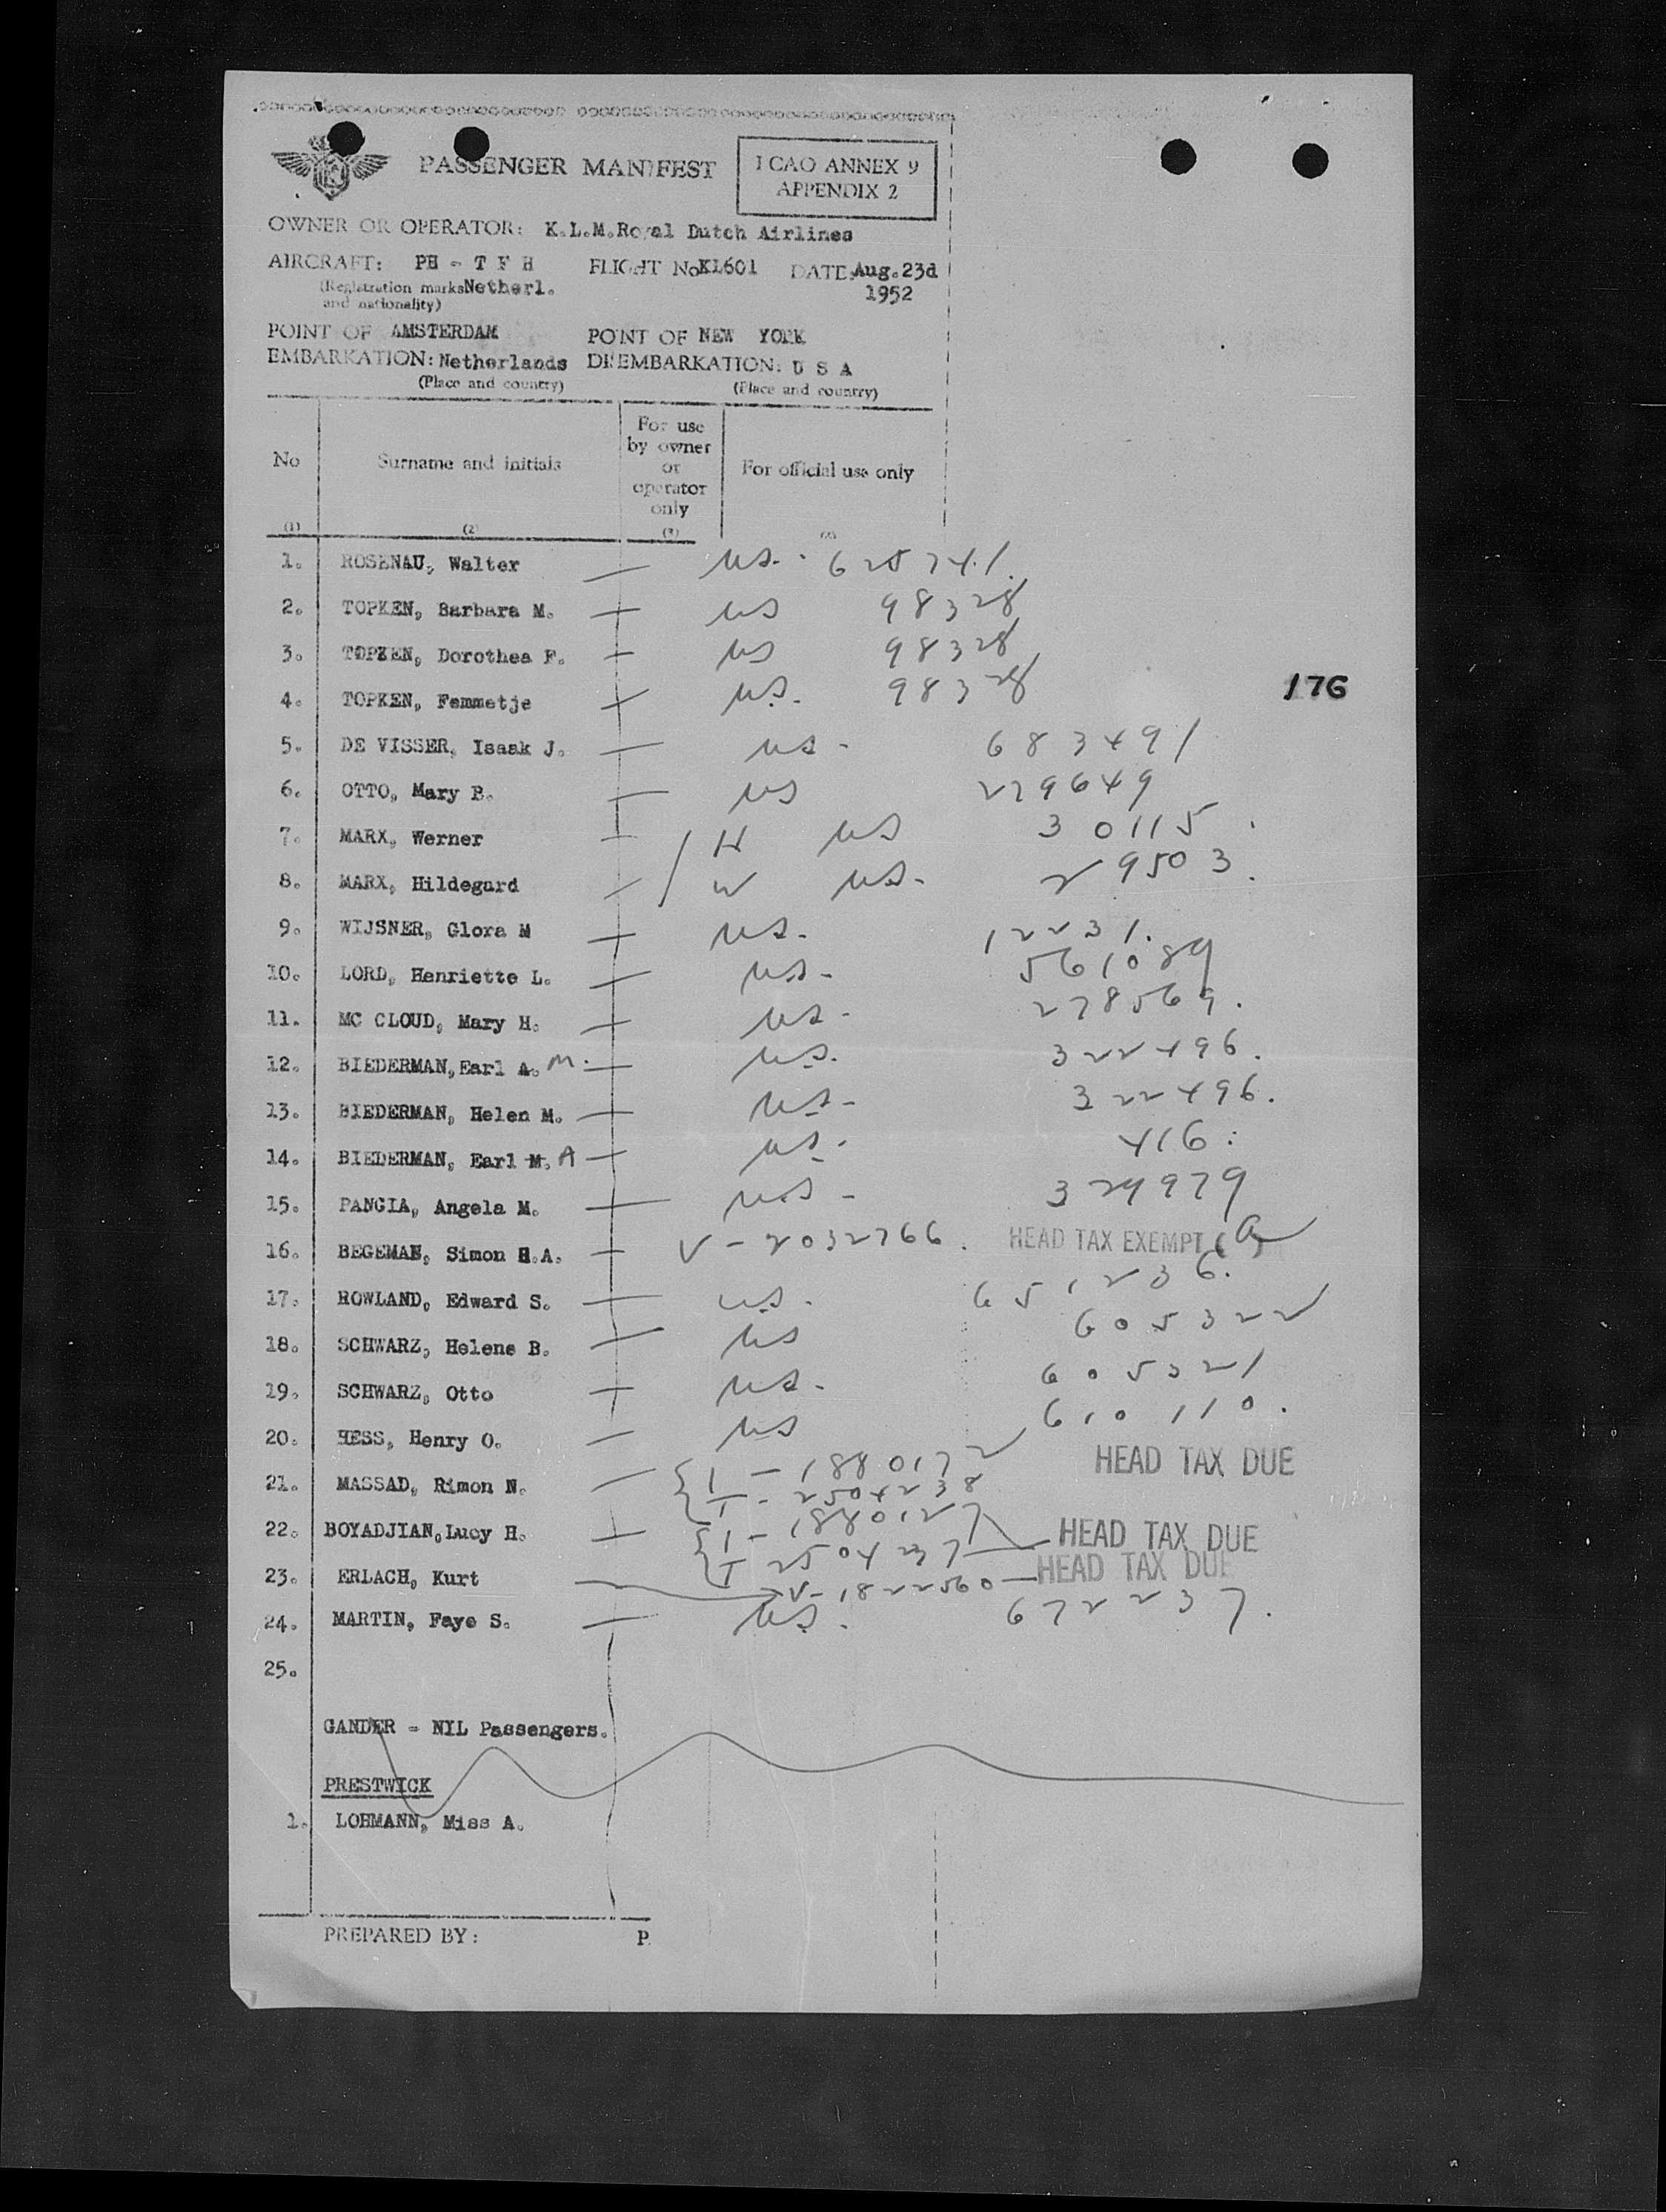 PASSENGER MANIFEST
ICAO ANNEX 9
APPENDIX 2
OWNER OR OPERATOR: K.L.M.Royal Dutch Airlines
AIRCRAFT: PH - T F H FLIGHT No KL601 DATE: Aug.23d
(Registration marks Netherl. 1952
and nationality)
POINT OF AMSTERDAM POINT OF NEW YORK
EMBARKATION: Netherlands DISEMBARKATION: U S A
(Place and country) (Place and country)
No Surname and initials For use by owner or operator only For official use only
(1) (2) (3)
1. ROSENAU, Walter — us. 625741.
2. TOPKEN, Barbara M. — us 98328
3. TOPKEN, Dorothea F. — us 98328
4. TOPKEN, Femmetje — us. 98328
176
5. DE VISSER, Isaak J. — us. 683491
6. OTTO, Mary B. — us 279649
7. MARX, Werner — H us 30115.
8. MARX, Hildegard — W us. 29503.
9. WIJSNER, Glora M — us. 12231.
10. LORD, Henriette L. — us. 561089
11. MC CLOUD, Mary H. — us. 278569.
12. BIEDERMAN, Earl A. M. — us. 322496.
13. BIEDERMAN, Helen M. — us. 322496.
14. BIEDERMAN, Earl M. A — us. 416.
15. PANGIA, Angela M. — us. 329979
16. BEGEMAN, Simon H.A. — V-2032766. HEAD TAX EXEMPT
17. ROWLAND, Edward S. — us. 651236.
18. SCHWARZ, Helene B. — us 605322
19. SCHWARZ, Otto — us. 605321
20. HESS, Henry O. — us 610110.
21. MASSAD, Rimon N. — 1-1880172 HEAD TAX DUE
I-2504238
22. BOYADJIAN, Lucy H. — 1-1880127 HEAD TAX DUE
I-2504237
23. ERLACH, Kurt — V-1822560 — HEAD TAX DUE
24. MARTIN, Faye S. — us. 672237.
25.
GANDER - NIL Passengers.
PRESTWICK
1. LOHMANN, Miss A.
PREPARED BY: P